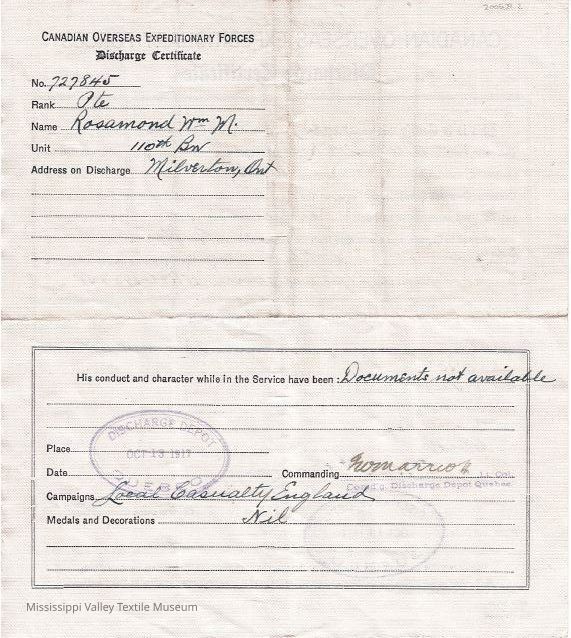 CANADIAN OVERSEAS EXPEDITIONARY FORCES
Discharge Certificate
No. 727845
Rank Pte
Name Rosamond Wm M.
Unit 110th BN
Address on Discharge Milverton, Ont
His conduct and character while in the Service have been : Documents not available
DISCHARGE DEPOT
OCT 13 1917
QUEBEC
Place
Date
Commanding
Lt. Col.
Comd'g. Discharge Depot Quebec.
Campaigns Local Casualty England
Medals and Decorations Nil
Mississippi Valley Textile Museum